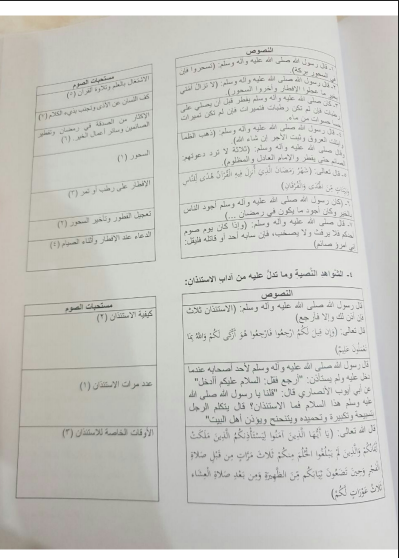 النصوص
١- قال رسول الله صلى الله عليه وآله وسلم: (تسحروا فإن
في السحور بركة)
قال رسول الله صلى الله عليه وآله وسلم: (لا تزال أمتي
بخير ما عجلوا الإفطار وأخروا السحور)
كان رسول الله صلى الله عليه وآله وسلم يفطر قبل أن يصلي على
رطبات فإن لم تكن رطبات فتميرات فإن لم تكن تميرات
حسا حسوات من ماء.
قال رسول الله صلى الله عليه وآله وسلم: (ذهب الظمأ
وابتلت العروق وثبت الأجر إن شاء الله)
قال رسول الله صلى الله عليه وآله وسلم: (ثلاثة لا ترد دعوتهم:
الصائم حتى يفطر والإمام العادل والمظلوم)
قال تعالى: (شَهْرُ رَمَضَانَ الَّذِي أُنْزِلَ فِيهِ الْقُرْآنُ هُدًى لِلنَّاسِ
وَبَيِّنَاتٍ مِنَ الْهُدَى وَالْفُرْقَانِ)
وكان رسول الله صلى الله عليه وآله وسلم أجود الناس
بالخير وكان أجود ما يكون في رمضان ...)
قال رسول الله صلى الله عليه وآله وسلم: (وإذا كان يوم صوم
أحدكم فلا يرفث ولا يصخب، فإن سابه أحد أو قاتله فليقل:
إني امرؤ صائم)
مستحبات الصوم
الاشتغال بالعلم وتلاوة القرآن (٥)
كف اللسان عن الأذى وتجنب بذيء الكلام (٧)
الإكثار من الصدقة في رمضان وتفطير
الصائمين وسائر أعمال الخير. (٦)
السحور (١)
الإفطار على رطب أو تمر (٣)
تعجيل الفطور وتأخير السحور (٢)
الدعاء عند الإفطار وأثناء الصيام (٤)
٤- الشواهد النصية وما تدل عليه من آداب الاستئذان:
النصوص
قال رسول الله صلى الله عليه وآله وسلم: (الاستئذان ثلاث
فإن أذن لك وإلا فارجع)
قال تعالى: (وَإِن قِيلَ لَكُمُ ارْجِعُوا فَارْجِعُوا هُوَ أَزْكَى لَكُمْ وَاللَّهُ بِمَا
تَعْمَلُونَ عَلِيمٌ)
قال رسول الله صلى الله عليه وآله وسلم لأحد أصحابه عندما
دخل عليه ولم يستأذن: "ارجع فقل: السلام عليكم أأدخل"
عن أبي أيوب الأنصاري قال: "قلنا يا رسول الله صلى الله
عليه وسلم هذا السلام فما الاستئذان؟ قال يتكلم الرجل
تسبيحة وتكبيرة وتحميدة ويتنحنح ويؤذن أهل البيت"
قال الله تعالى: (يَا أَيُّهَا الَّذِينَ آمَنُوا لِيَسْتَأْذِنكُمُ الَّذِينَ مَلَكَتْ
أَيْمَانُكُمْ وَالَّذِينَ لَمْ يَبْلُغُوا الْحُلُمَ مِنكُمْ ثَلَاثَ مَرَّاتٍ مِن قَبْلِ صَلَاةِ
الْفَجْرِ وَحِينَ تَضَعُونَ ثِيَابَكُم مِّنَ الظَّهِيرَةِ وَمِن بَعْدِ صَلَاةِ الْعِشَاء
ثَلَاثُ عَوْرَاتٍ لَّكُمْ)
مستحبات الصوم
كيفية الاستئذان (٢)
عدد مرات الاستئذان (١)
الأوقات الخاصة للاستئذان (٣)